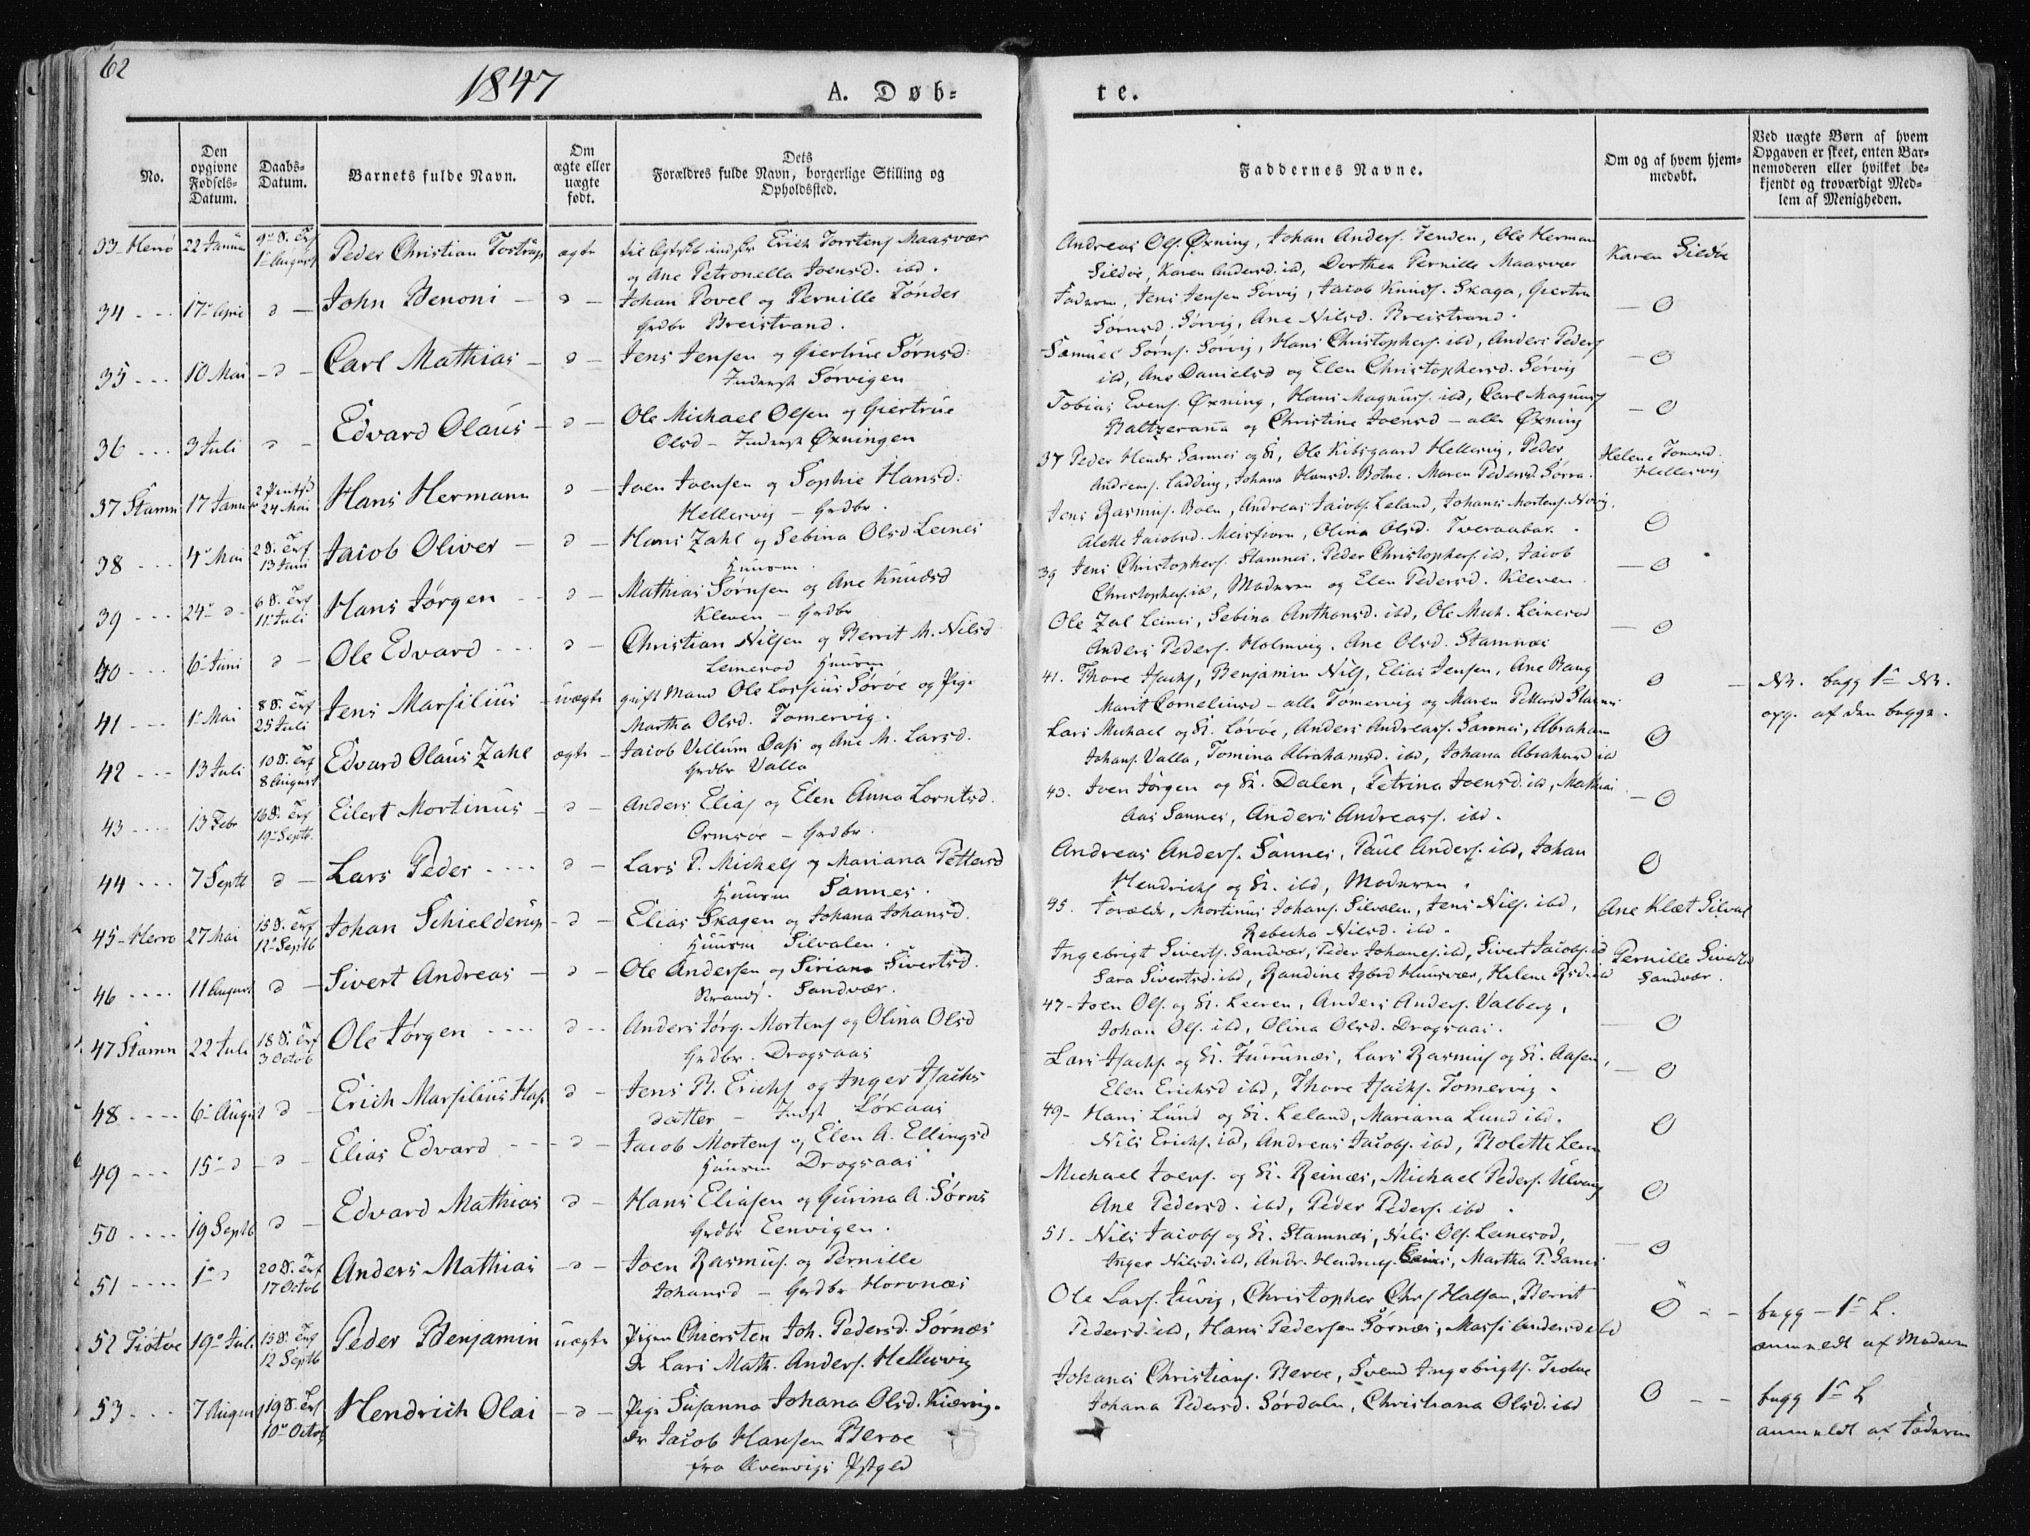 62
1847
A. Døb-
te.
No.
Den opgivne Fødsels-Datum.
Daabs-Datum.
Barnets fulde Navn.
Om ægte eller uægte født.
Dets Forældres fulde Navn, borgerlige Stilling og Opholdssted.
Faddernes Navne.
Om og af hvem hjem-
medøbt.
Ved uægte Børn af hvem
Opgaven er skeet, enten Bar-
nemoderen eller hvilket be-
kjendt og troværdigt Med-
lem af Menigheden.
33 - Herrö 22 Januar 1 August Peder Christian Tostrup ægte Erich Torstens Maasvær
og Ane Petronella Joensd. ibd.
Andreas Ols. Øxning, Johan Anders. Tenden, Ole Herman
Sildöe, Karen Andersd. ibd, Dorthea Pernille Maasvær
Karen Sildöe
34 17 April d John Benoni d Johan Povel og Pernille Tönder
Grdbr Breistrand.
Faderen, Jens Jensen Sörvig, Jacob Knuds. Skaga, Giertru
Sörensd. Sörvig, Ane Nilsd. Breistrand.
O
35 10 Mai d Carl Mathias d Jens Jensen og Giertrue Sörnsd:
Inderst Sörvigen
Samuel Sörns. Sörvig, Hans Christophers. ibd, Anders Peders
ibd, Ane Danielsd og Elen Christophersd. Sörvig
O
36 3 Juli d Edvard Olaus d Ole Michael Olsen og Giertrue
Olsd - Inderst Øxningen
Tobias Evens. Øxning, Hans Magnus. ibd, Carl Magnus
Baltzeranna og Christine Joensd - alle Øxning
O
37 Stamn 17 Januar 24 Mai Hans Hermann d Joen Joensen og Sophie Hansd:
Hellesvig - Grdbr.
37 Peder Hendr Sannes og K, Ole Kibsgaard Hellesvig, Peder
Andreas. Ladding, Johana Hansd. Botne. Maren Pedersd. Sörra
Helene Tomsd.
Hellesvig
38 4 Mai 2 S. Trf 13 Juni Jacob Oliver d Hans Zahl og Sebina Olsd Leines
Huusm.
Jens Rasmus. Boen, Andreas Jacobs. Leland, Johans Mortens. Nevig,
Alette Jacobsd. Meisfiorn, Olina Olsd. Tveraabar.
O
39 24 d 6 S. Trf 11 Juli Hans Jörgen d Mathias Sörnsen og Ane Knudsd
Kleven - Grdbr
39 Jens Christophers. Stamnes, Peder Christophers. ibd, Jacob
Christophers. ibd, Moderen og Elen Pedersd. Kleven
O
40 6 Juni d Ole Edvard d Christian Nilsen og Berrit M. Nilsd
Leinesod Huusm
Ole Zal Leines, Sebina Anthonsd. ibd, Ole Mich. Leinesod
Anders Peders. Holmvig, Ane Olsd. Stamnæs
O
41 1 Mai 8 S. Trf 25 Juli Jens Marsilius uægte gift Mand Ole Lossius Sörøe og Pige
Martha Olsd. Tomervig.
41. Thore Isachs, Benjamin Nils, Elias Jensen, Ane Bang
Marit Corneliusd - alle Tömervig og Maren Pettersd Stamnes
O
NB. begg 1 NB.
opg. af dem begge.
42 13 Juli 10 S. Trf 8 August Edvard Olaus Zahl ægte Jacob Villum Dass og Ane M. Larsd.
Grdbr Valla
Lars Michael og K. Lövøe, Anders Andreass. Sannes, Abraham
Johans. Valla, Tomina Abrahamsd. ibd, Johana Abrahamsd ibd
O
43 13 Febr 16 S. Trf 19 Septb. Eilert Mortinus d Anders Elias og Elen Anna Lorntsd.
Ormsöe - Grdbr.
43. Joen Jörgen og K. Dalen, Petrina Joensd. ibd, Mathias
Aas Sannes, Anders Andreass. ibd.
O
44 7 Septb d Lars Peder d Lars P. Michels og Mariana Pettersd
Huusm Sannes.
Andreas Anders. Sannes, Paul Anders. ibd, Johan
Hendrichs og K. ibd, Moderen.
O
45 - Herrö 27 Mai 15 S. Trf 12 Septb Johan Schielderup d Elias Skagen og Johana Johansd.
Huusm Silvalen.
45. Forældr, Mortinus Johans. Silvalen, Jens Nils. ibd,
Rebecha Nilsd. ibd.
Ane Klæt Silval
46 11 August d Sivert Andreas d Ole Andersen og Siriane Sivertsd.
Strands. Sandvær.
Ingebrigt Siverts. Sandvær, Peder Johanes. ibd, Sivert Jacobs. ibd
Sara Sivertsd. ibd, Randine Igbrd Huusvær, Helene Rsd. ibd
Pernille Sivertsd
Sandvær.
47 Stamn 22 Juli 18 S. Trf 3 Octob Ole Jörgen d Anders Jörg. Mortens og Olina Olsd
Grdbr. Drogsaas
47 - Joen Ols. og K. Leeren, Anders Anders. Valberg,
Johan Ols. ibd, Olina Olsd. Drogsaas.
O
48 6 August d Erich Marsilius Hass d Jens B. Erichs og Inger Isachs
datter - Indst Löxaas
Lars Isachs og K. Furunæs, Lars Rasmus og K. Aasen,
Elen Erichsd ibd, Thore Isachs. Tomervig.
O
49 15 d d Elias Edvard d Jacob Mortens og Elen A. Ellingsd
Huusm Drogsaas
49 - Hans Lund og K. Leland, Mariana Lund ibd.
Nils Erichs. ibd, Andreas Jacobs. ibd, Bolette Lem
O
50 19 Septb d Edvard Mathias d Hans Eliasen og Gurina A. Sörns
Grdbr Eenvigen.
Michael Joens. og K. Reinæs, Michael Peders. Ulvang
Ane Pedersd. ibd, Peder Peders. ibd.
O
51 1 d 20 S. Trf 17 Octob Anders Mathias d Joen Rasmus. og Pernille
Johansd - Grdbr Horvnæs
51. Nils Jacobs og K. Stamnæs, Nils Ols. Leinesod,
Inger Nilsd. ibd, Andr. Hendrichs. Leines, Martha P. Sannes
O
52 Tiötøe 19 Juli 15 S. Trf 12 Septb Peder Benjamin uægte Pigen Chiersten Joh. Pedersd. Sörnæs
Lars Math. Anders. Hellesvig
Ole Lars. Juvig, Christopher Chrs Halsan, Berrit
Pedersd. ibd, Hans Pedersen Sörnæs, Massi Andersd ibd
O
begg - 1 L.
anmeldt af Moderen
53 7 August 19 S. Trf 10 Octob Hendrich Olai d Pige Susanna Johana Olsd. Kiærvig.
Jacob Hansen Berøe
fra Prstgld
Johanes Christians. Berøe, Svend Ingebrigts. Tiötøe
Johana Pedersd. Sördalen, Christiana Olsd. ibd
O
begg 1 L
anmeldt af Faderen